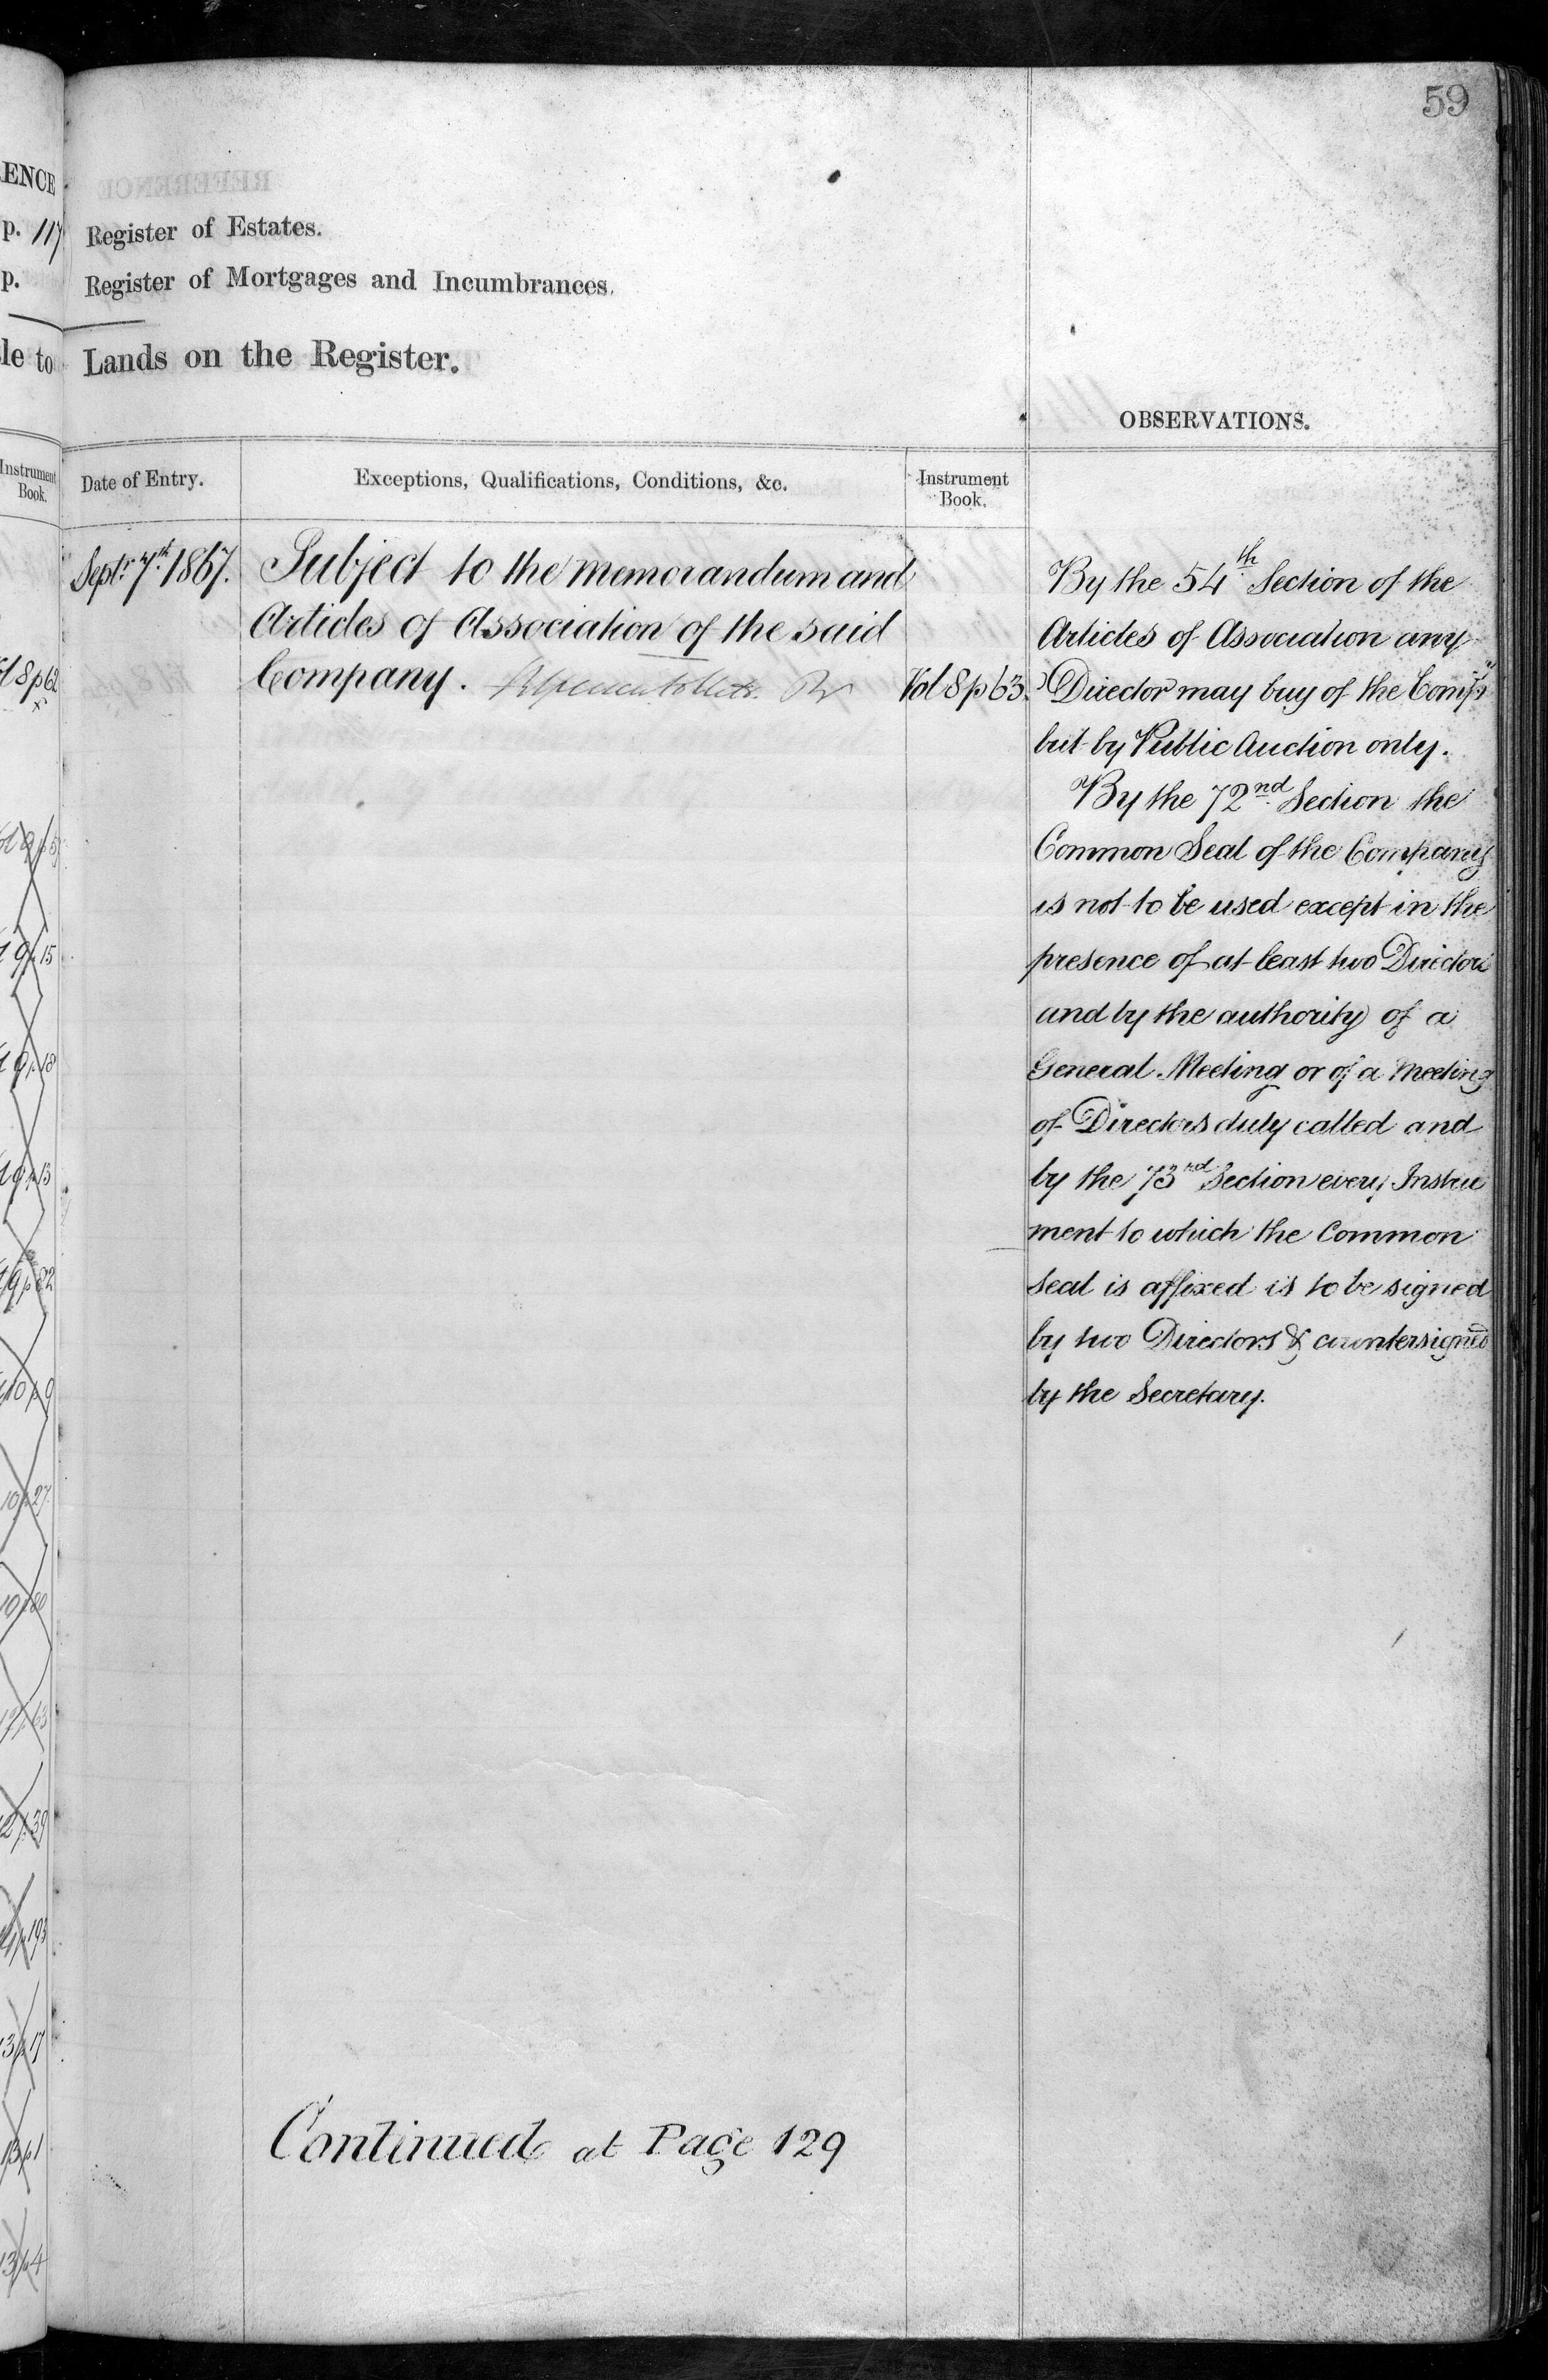 59
ENCE
p. 117
p.
le to
Instrument
Book.
Register of Estates.
Register of Mortgages and Incumbrances.
Lands on the Register.
OBSERVATIONS.
Date of Entry.
Exceptions, Qualifications, Conditions, &c.
Instrument
Book.
Septr. 7th. 1867.
Subject to the memorandum and
Articles of Association of the said
Company.
Vol 8 p 63.
By the 54th Section of the
Articles of Association any
Director may buy of the Compy
but by Public Auction only.
By the 72nd Section the
Common Seal of the Company
is not to be used except in the
presence of at least two Directors
and by the authority of a
General Meeting or of a Meeting
of Directors duly called and
by the 73rd Section every Instru
ment to which the Common
Seal is affixed is to be signed
by two Directors & countersigned
by the Secretary.
Continued at Page 129